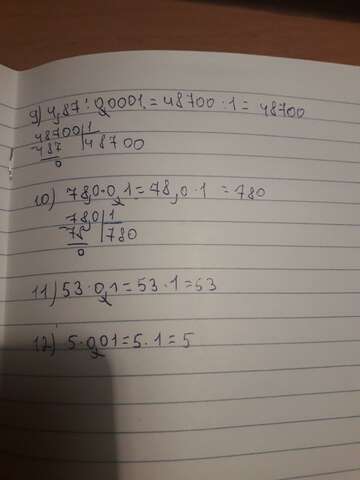 9) 4,87 : 0,0001 = 48700 · 1 = 48700
48700 | 1
-487 | 48700
0
10) 78,0 · 0,1 = 78,0 · 1 = 780
-78,0 | 1
78 | 780
0
11) 53 · 0,1 = 53 · 1 = 53
12) 5 · 0,01 = 5 · 1 = 5